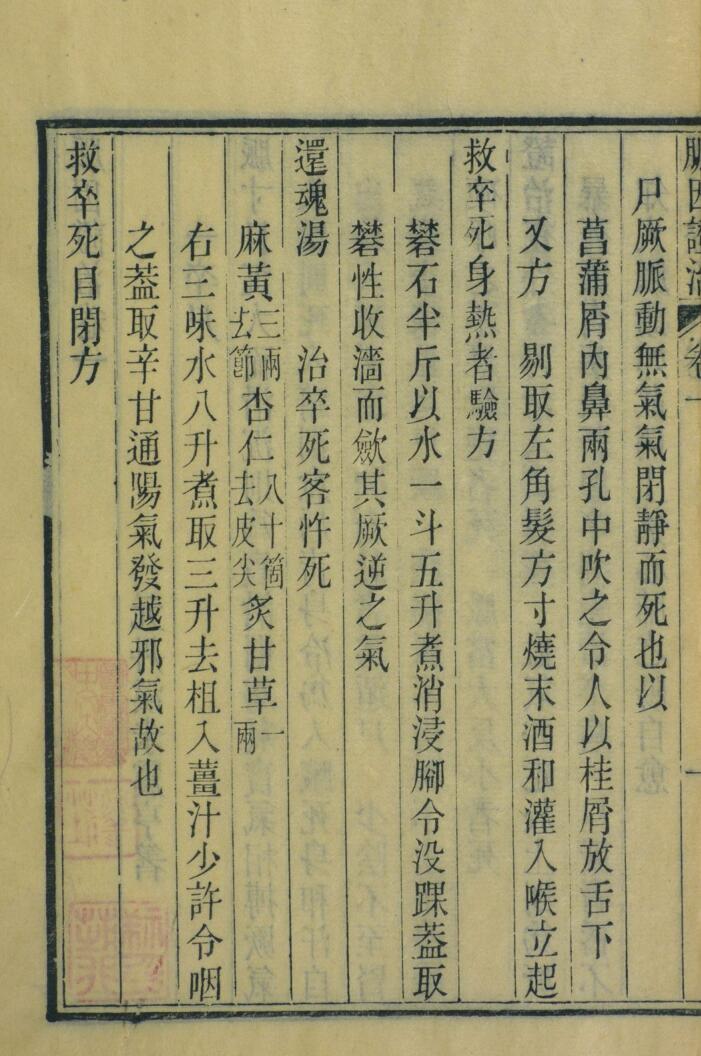 脈因證治 卷一
尸厥脈動無氣氣閉靜而死也以
菖蒲屑內鼻兩孔中吹之令人以桂屑放舌下
又方　剔取左角髮方寸燒末酒和灌入喉立起
救卒死身熱者驗方
礬石半斤以水一斗五升煮消浸腳令沒踝葢取
礬性收濇而歛其厥逆之氣
還魂湯　治卒死客忤死
麻黃三兩去節杏仁八十箇去皮尖炙甘草一兩
右三味水八升煮取三升去柤入薑汁少許令咽
之葢取辛甘通陽氣發越邪氣故也
救卒死目閉方